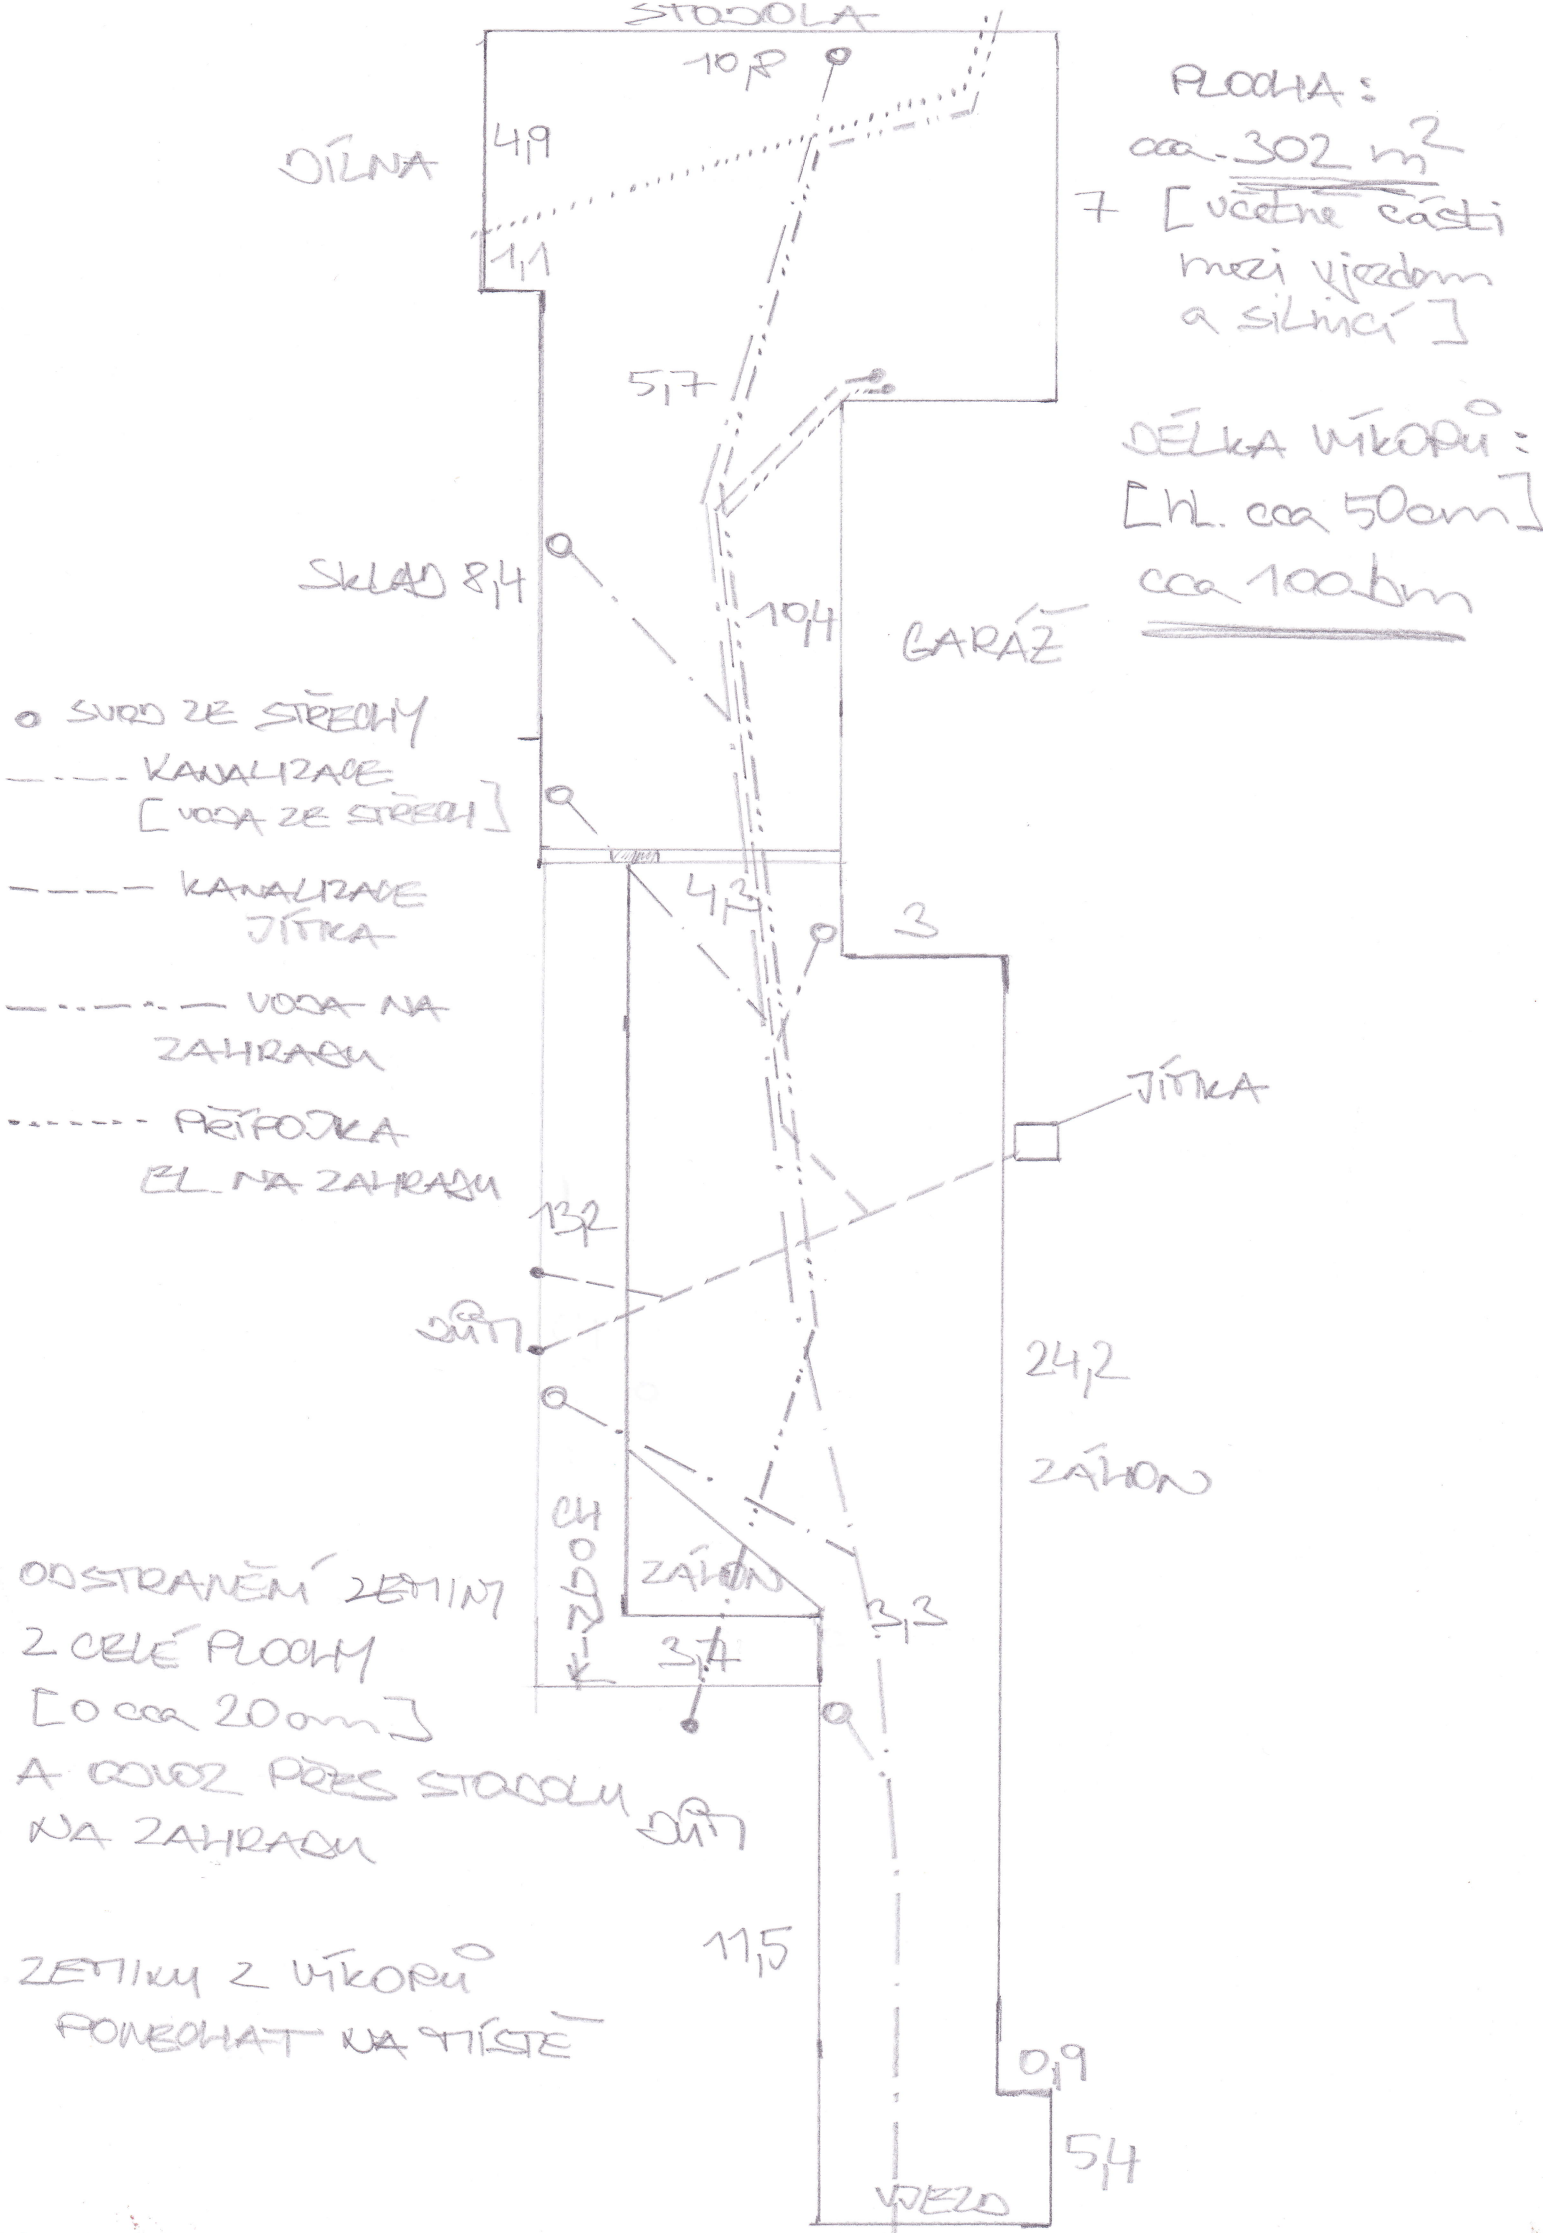 STODOLA
10,8
PLOCHA:
cca 302 m²
[včetně části
mezi vjezdem
a silnicí]
4,9
DÍLNA
7
1,1
5,7
DÉLKA VÝKOPŮ:
[hl. cca 50cm]
cca 100 bm
SKLAD 8,4
10,4
GARÁŽ
SVOD ZE STŘECHY
KANALIZACE
[VODA ZE STŘECH]
KANALIZACE
JÍMKA
4,3
3
VODA NA
ZAHRADU
JÍMKA
PŘÍPOJKA
EL. NA ZAHRADU
13,2
DŮM
24,2
ZÁHON
CH
ZÁHON
ODSTRANĚNÍ ZEMINY
Z CELÉ PLOCHY
[o cca 20cm]
A ODVOZ PŘES STODOLU
NA ZAHRADU
3,3
DŮM
11,5
ZEMINU Z VÝKOPŮ
PONECHAT NA MÍSTĚ
0,9
5,4
VJEZD